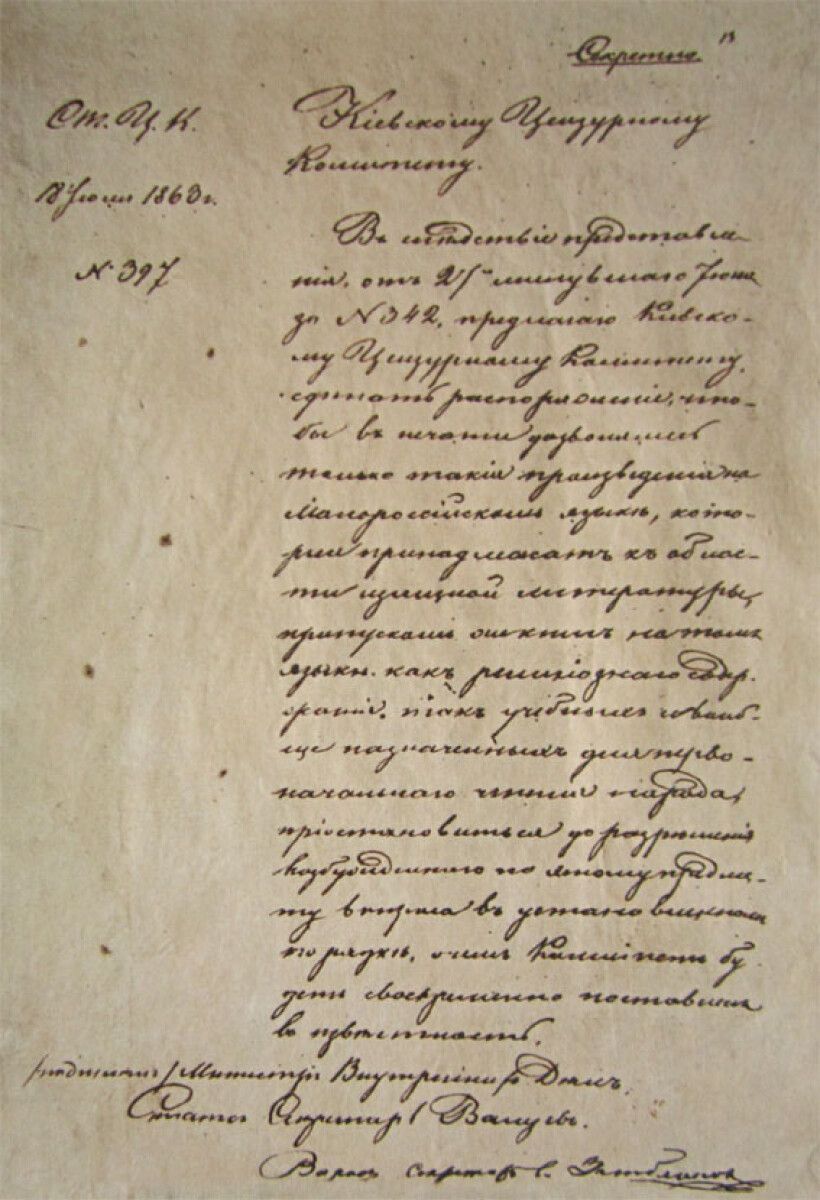 Секретно.
Ст. Ц. К.
Кіевскому Цензурному
Комитету.
18 Іюля 1863 г.
N 397
Въ слѣдствіе представле-
нія, отъ 27го минувшаго Іюня
за N 342, предлагаю Кіевско-
му Цензурному Комитету,
сдѣлать распоряженіе, что-
бы въ печати дозволялись
только такія произведенія на
Малороссійскомъ языкѣ, кото-
рыя принадлежатъ къ облас-
ти изящной литературы,
пропускомъ книгъ на томъ
языкѣ, какъ религіознаго содер-
жанія, такъ учебныхъ и вооб-
ще назначенныхъ для перво-
начальнаго чтенія народа,
пріостановиться до разрѣшенія
возбужденнаго по этому предме-
ту вопроса въ установленномъ
порядкѣ, о чемъ Комитетъ бу-
детъ своевременно поставленъ
въ извѣстность.
/подписалъ/ Министръ Внутреннихъ Дѣлъ,
Статсъ Секретарь Валуевъ.
секретарь